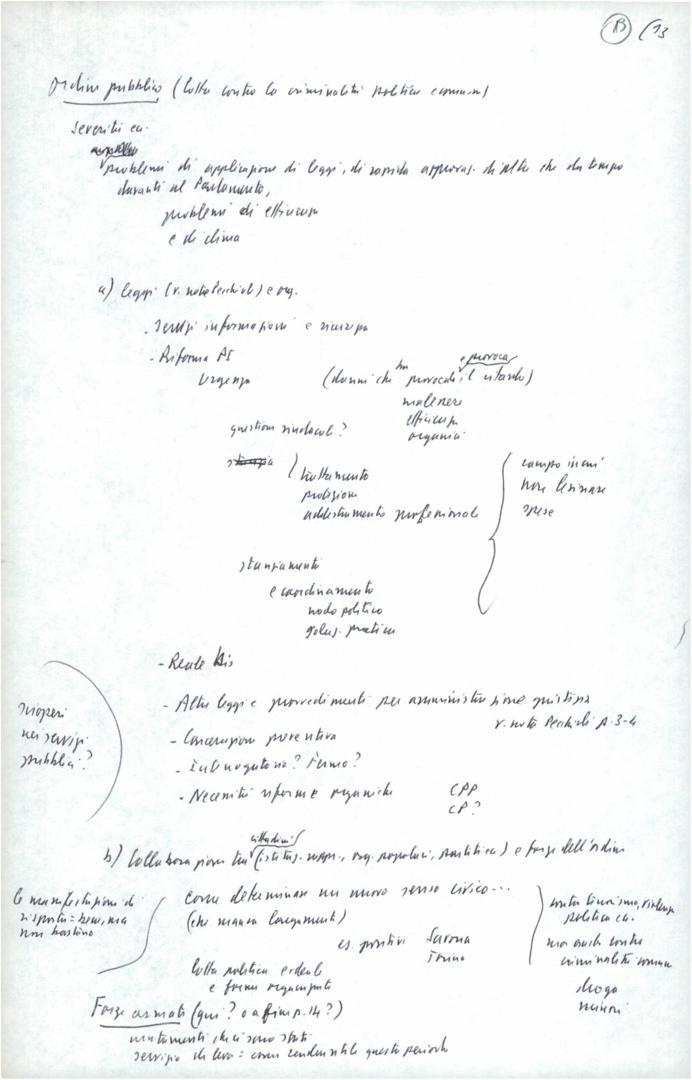 B (13
Ordine pubblico (lotta contro la criminalità politica e comune)
Severità ecc.
problemi di applicazione di leggi, di rapida approvaz. di altre che da tempo
davanti al Parlamento,
problemi di efficienza
e di clima
a) leggi (v. nota Pecchioli) e org.
- Servizi informazioni e sicurezza
- Riforma PS
Urgenza
(danni che ha provocato e provoca il ritardo)
malessere
efficienza
organici
questione sindacale?
trattamento
protezione
addestramento professionale
campo in cui
non lesinare
spese
stanziamenti
e coordinamento
nodo politico
soluz. pratica
- Reale bis
- Altre leggi e provvedimenti per amministrazione giustizia
v. nota Pecchioli p. 3-4
- Carcerazione preventiva
- Interrogatorio? Fermo?
- Necessità riforme organiche
CPP
CP?
scioperi
nei servizi
pubblici?
b) Collaborazione tra cittadini (istituz. rappr., org. popolari, partiti ecc) e forze dell'ordine
le manifestazioni di
risposta = bene, ma
non bastano
come determinare un nuovo senso civico...
(che manca largamente)
es. positivi Savona
Torino
lotta politica e ideale
e forme organizzate
contro terrorismo, violenza
politica ecc.
ma anche contro
criminalità comune
droga
minori
Forze armate (qui? o a fine p. 14?)
mutamenti che ci sono stati
servizio di leva = come renderne utile questo periodo